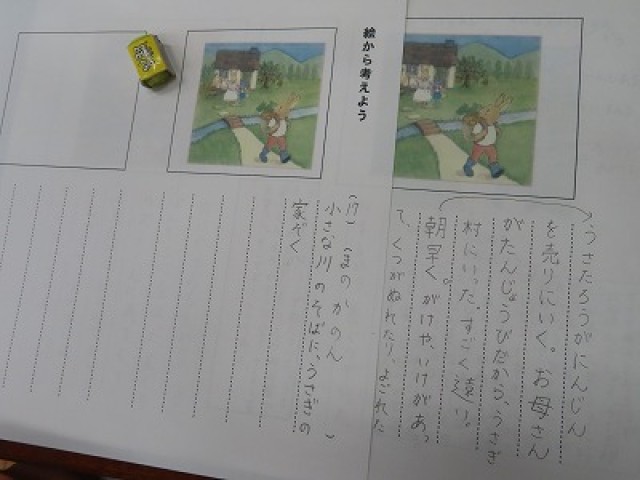 うさたろうがにんじん
を売りにいく。お母さん
がたんじょうびだから、うさぎ
村にいった。すごく遠い。
朝早く。がけや、いけがあっ
て、くつがぬれたり、よごれた
絵から考えよう
(17) (まの かのん )
小さな川のそばに、うさぎの
家ぞく